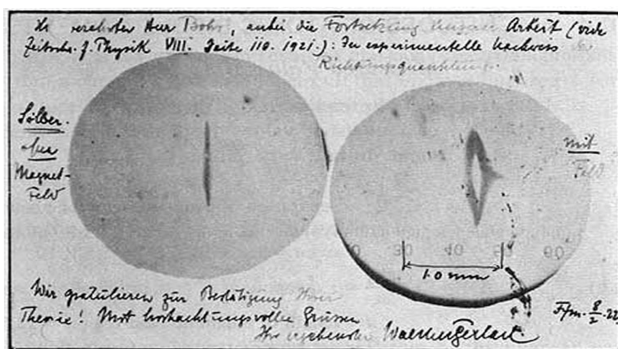 verehrter Herr Bohr, anbei die Fortsetzung unserer Arbeit (vide
Zeitschr. f. Physik VIII. Seite 110. 1921.): Der experimentelle Nachweis
Richtungsquantelung.
Silber
ohne
Magnet-
Feld
mit
Feld
30 40 60
1.0 mm
Wir gratulieren zur Bestätigung Ihrer
Theorie! Mit hochachtungsvollen Grüssen
Ihr ergebenster Walther Gerlach
Ffm. 8/2. 22.